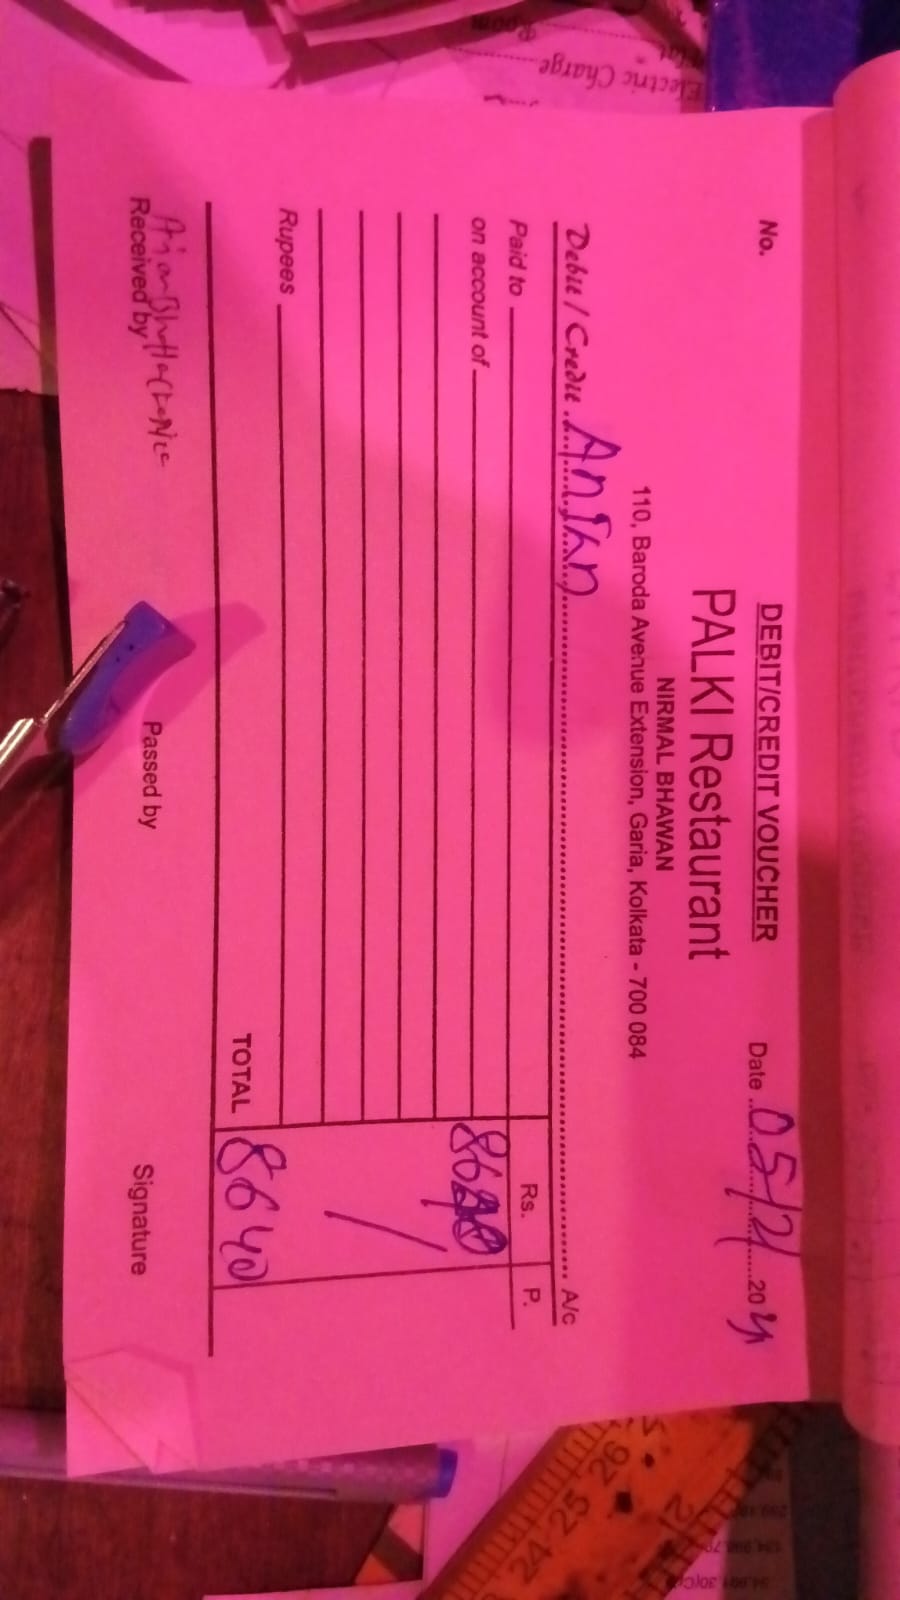 No.
DEBIT/CREDIT VOUCHER
Date 05/2/ 20
PALKI Restaurant
NIRMAL BHAWAN
110, Baroda Avenue Extension, Garia, Kolkata - 700 084
Debit / Credit ........ A/c
Paid to
Rs. P.
on account of
Rupees
TOTAL 8640
Received by
Passed by
Signature
Electric Charge
Room
24 25 26